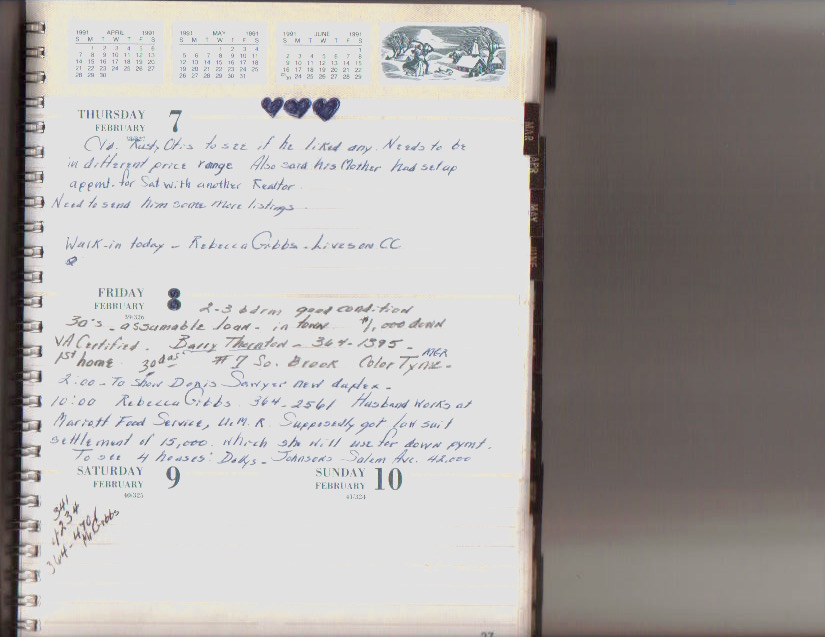 1991 APRIL 1991
S M T W T F S
1 2 3 4 5 6
7 8 9 10 11 12 13
14 15 16 17 18 19 20
21 22 23 24 25 26 27
28 29 30
1991 MAY 1991
S M T W T F S
1 2 3 4
5 6 7 8 9 10 11
12 13 14 15 16 17 18
19 20 21 22 23 24 25
26 27 28 29 30 31
1991 JUNE 1991
S M T W T F S
1
2 3 4 5 6 7 8
9 10 11 12 13 14 15
16 17 18 19 20 21 22
23/30 24 25 26 27 28 29
THURSDAY 7
FEBRUARY
Rusty Otis to see if he liked any. Needs to be
in different price range Also said his Mother had set up
appmt. for Sat with another Realtor
Need to send him some more listings
Walk-in today - Rebecca Gibbs - Lives on CC
FRIDAY 8
FEBRUARY
39/326
2-3 bdrm good condition
30's - assumable loan - in town $1,000 down
VA Certified. Barry Thornton - 364-1395 -
1st home 30 das. #7 So. Brook Color Tyme - MGR
2:00 - To show Doris Sawyer new duplex -
10:00 Rebecca Gibbs 364-2561 Husband works at
Marriott Food Service, U.M.R. Supposedly got law suit
settlement of 15,000. which she will use for down pymt.
To see 4 houses: Dollys - Johnsons Salem Ave. 42,000
SATURDAY 9
FEBRUARY
40/325
SUNDAY 10
FEBRUARY
41/324
341
4234
364-4701
Mr Gibbs
MAR
APR
MAY
27